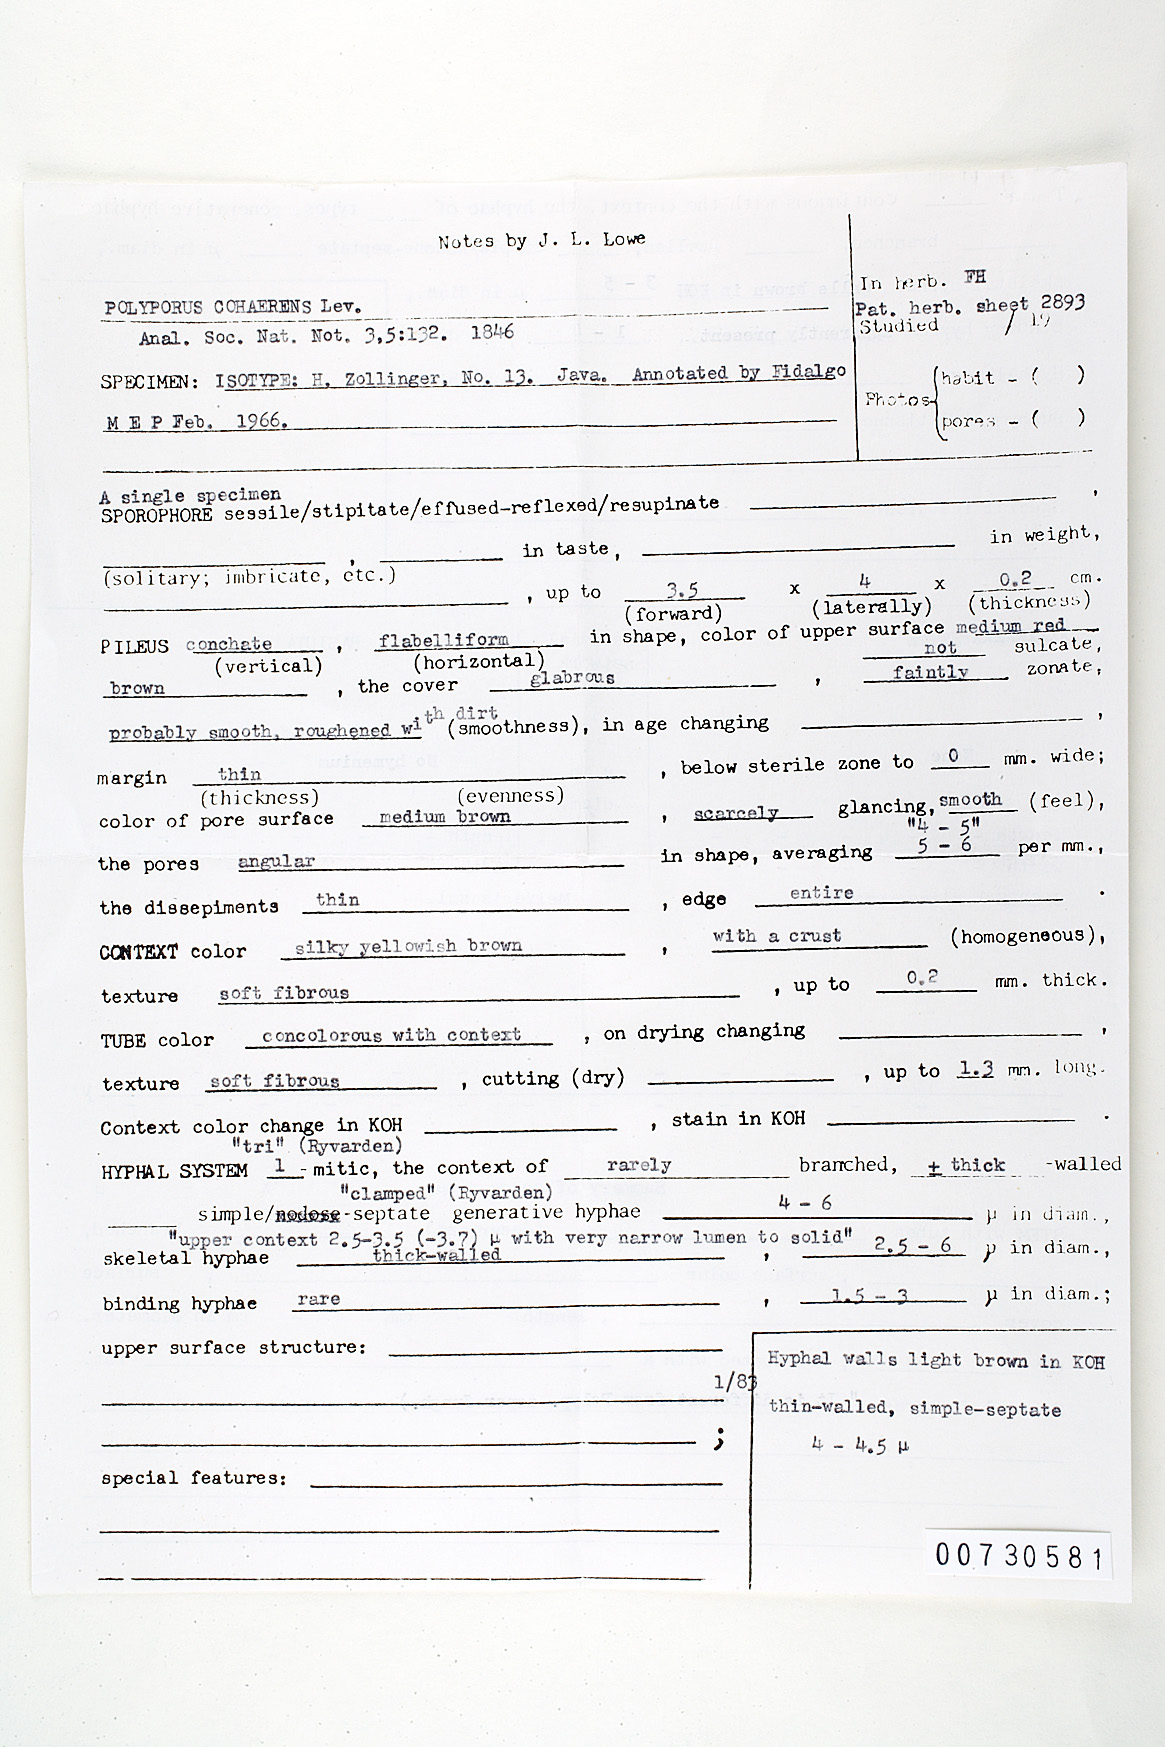 Notes by J. L. Lowe
In herb. FH
POLYPORUS COHAERENS Lev.
Pat. herb. sheet 2893
Anal. Soc. Nat. Not. 3,5:132. 1846
Studied / 19
SPECIMEN: ISOTYPE: H. Zollinger, No. 13. Java. Annotated by Fidalgo
M E P Feb. 1966.
Photos
habit - ( )
pores - ( )
A single specimen
SPOROPHORE sessile/stipitate/effused-reflexed/resupinate ,
, in taste, in weight,
(solitary; imbricate, etc.)
, up to 3.5 x 4 x 0.2 cm.
(forward) (laterally) (thickness)
PILEUS conchate , flabelliform in shape, color of upper surface medium red
(vertical) (horizontal) not sulcate,
brown , the cover glabrous , faintly zonate,
probably smooth, roughened with dirt (smoothness), in age changing ,
margin thin , below sterile zone to 0 mm. wide;
(thickness) (evenness)
color of pore surface medium brown , scarcely glancing, smooth (feel),
"4 - 5"
the pores angular in shape, averaging 5 - 6 per mm.,
the dissepiments thin , edge entire .
CONTEXT color silky yellowish brown , with a crust (homogeneous),
texture soft fibrous , up to 0.2 mm. thick.
TUBE color concolorous with context , on drying changing ,
texture soft fibrous , cutting (dry) , up to 1.3 mm. long.
Context color change in KOH , stain in KOH .
"tri" (Ryvarden)
HYPHAL SYSTEM 1 -mitic, the context of rarely branched, ± thick -walled
"clamped" (Ryvarden)
simple/nodose-septate generative hyphae 4 - 6 µ in diam.,
"upper context 2.5-3.5 (-3.7) µ with very narrow lumen to solid"
skeletal hyphae thick-walled , 2.5 - 6 µ in diam.,
binding hyphae rare , 1.5 - 3 µ in diam.;
upper surface structure:
1/83
;
Hyphal walls light brown in KOH
thin-walled, simple-septate
4 - 4.5 µ
special features:
00730581